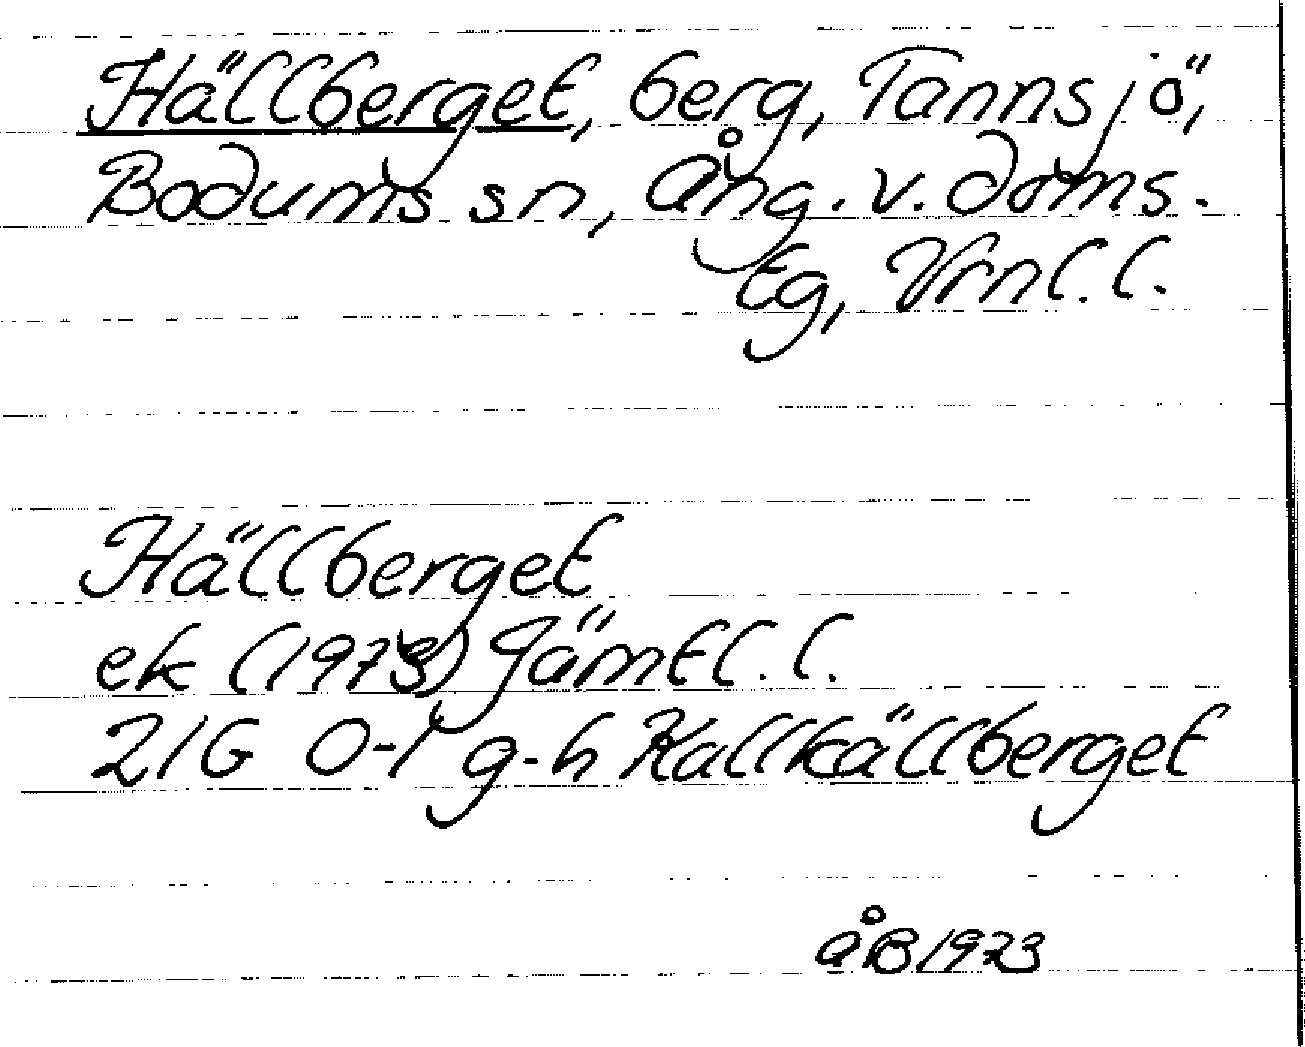 Hällberget, berg, Tannsjö,
Bodums sn, Ång. v. doms.
tg, Vrnl. l.
Hällberget
ek (1973) Jämtl. l.
21G 0-1 g-h Kallkällberget
ÅB 1973